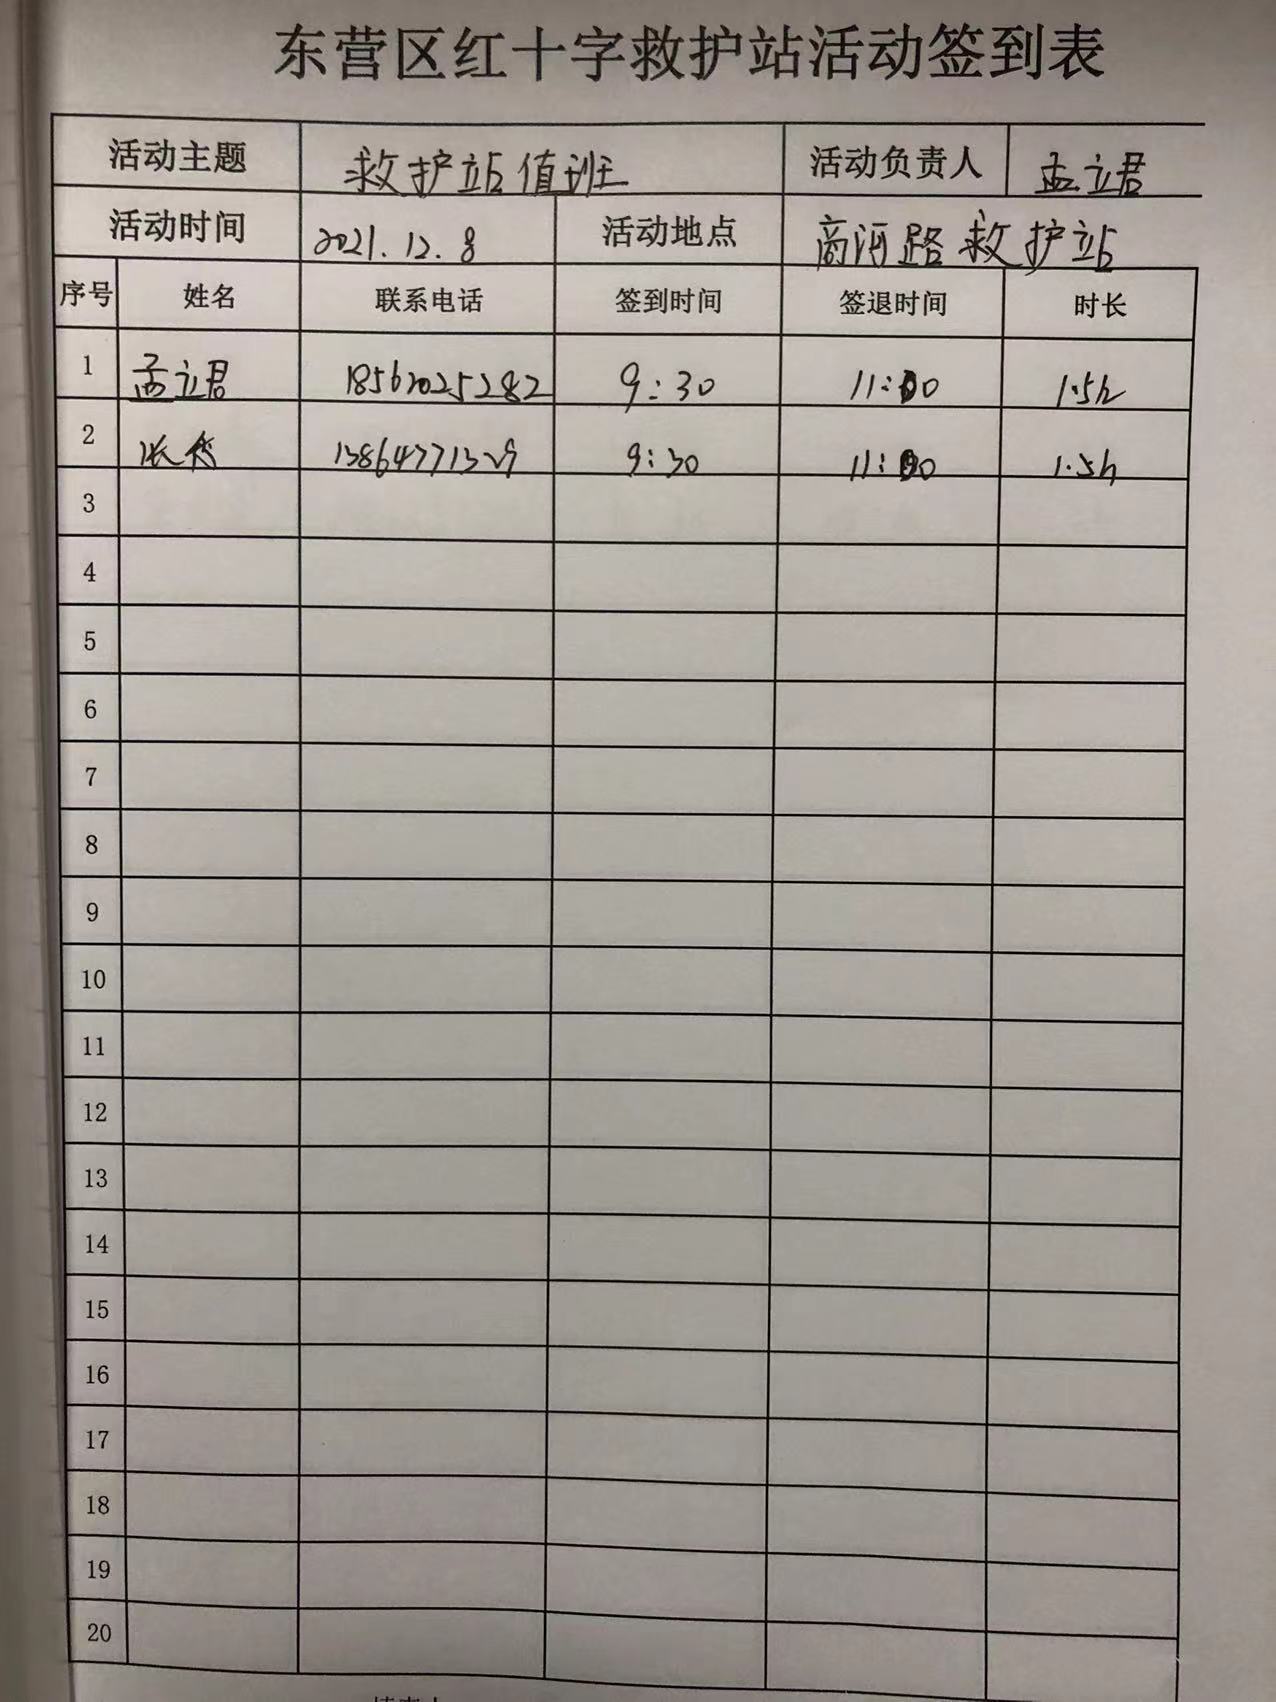 东营区红十字救护站活动签到表
活动主题 救护站值班 活动负责人 孟立君
活动时间 2021.12.8 活动地点 商河路救护站
序号 姓名 联系电话 签到时间 签退时间 时长
1 孟立君 18562025282 9:30 11:00 1.5h
2 9:30 11:00 1.5h
3
4
5
6
7
8
9
10
11
12
13
14
15
16
17
18
19
20